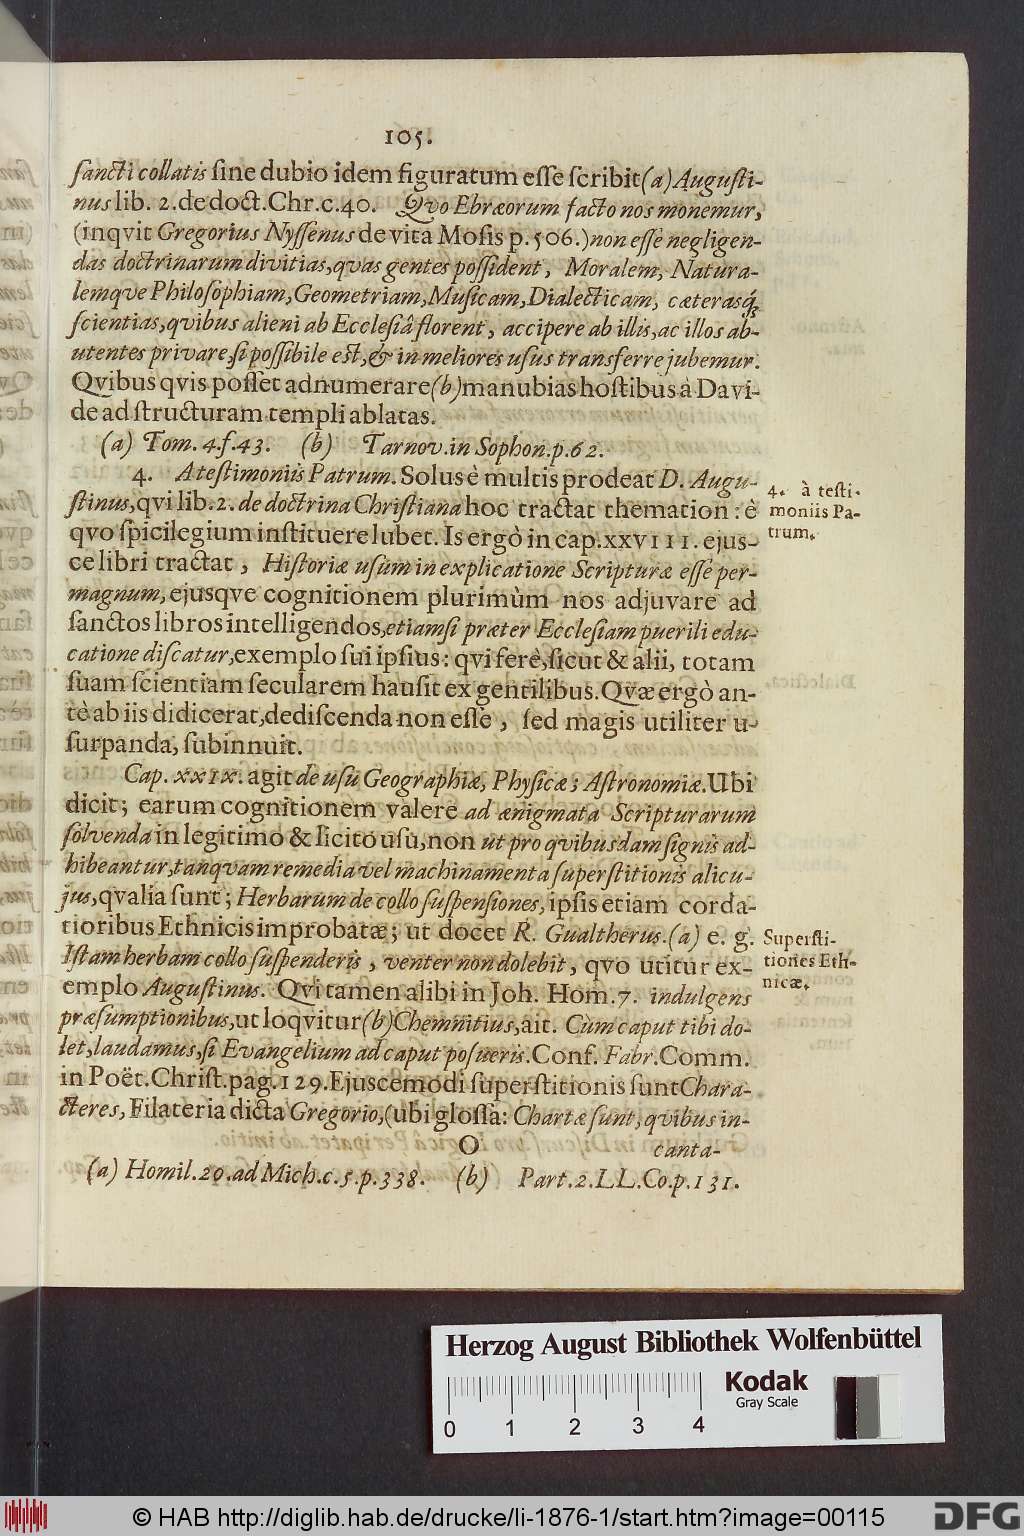 105.
sancti collatis sine dubio idem figuratum esse scribit (a) Augusti-
nus lib. 2. de doct. Chr. c. 40. Qvo Ebræorum facto nos monemur,
(inqvit Gregorius Nyssenus de vita Mosis p. 506.) non esse negligen-
das doctrinarum divitias, qvas gentes possident, Moralem, Natura-
lemqve Philosophiam, Geometriam, Musicam, Dialecticam, cæterasq́;
scientias, qvibus alieni ab Ecclesiâ florent, accipere ab illis, ac illos ab-
utentes privare, si possibile est, & in meliores usus transferre jubemur.
Qvibus qvis posset adnumerare (b) manubias hostibus à Davi-
de ad structuram templi ablatas.
(a) Tom. 4. f. 43. (b) Tarnov. in Sophon. p. 62.
4. A testimoniis Patrum. Solus è multis prodeat D. Augu-
stinus, qvi lib. 2. de doctrina Christiana hoc tractat themation: è
qvo spicilegium instituere lubet. Is ergò in cap. XXVIII. ejus-
ce libri tractat, Historiæ usum in explicatione Scripturæ esse per-
magnum, ejusqve cognitionem plurimùm nos adjuvare ad
sanctos libros intelligendos, etiamsi præter Ecclesiam puerili edu-
catione discatur, exemplo sui ipsius: qvi ferè, sicut & alii, totam
suam scientiam secularem hausit ex gentilibus. Qvæ ergò an-
tè ab iis didicerat, dediscenda non esse, sed magis utiliter u-
surpanda, subinnuit.
Cap. XXIX. agit de usu Geographiæ, Physicæ; Astronomiæ. Ubi
dicit; earum cognitionem valere ad ænigmata Scripturarum
solvenda in legitimo & licito usu, non ut pro qvibusdam signis ad-
hibeantur, tanqvam remedia vel machinamenta superstitionis alicu-
jus, qvalia sunt; Herbarum de collo suspensiones, ipsis etiam corda-
tioribus Ethnicis improbatæ; ut docet R. Gualtherus. (a) e. g.
Istam herbam collo suspenderis, venter non dolebit, qvo utitur ex-
emplo Augustinus. Qvi tamen alibi in Joh. Hom. 7. indulgens
præsumptionibus, ut loqvitur (b) Chemnitius, ait. Cùm caput tibi do-
let, laudamus, si Evangelium ad caput posueris. Conf. Fabr. Comm.
in Poët. Christ. pag. 129. Ejuscemodi superstitionis sunt Chara-
cteres, Filateria dicta Gregorio, (ubi glossa: Chartæ sunt, qvibus in-
O canta-
(a) Homil. 20. ad Mich. c. 5. p. 338. (b) Part. 2. LL. Co. p. 131.
4. à testi-
moniis Pa-
trum.
Supersti-
tiones Eth-
nicæ.
Herzog August Bibliothek Wolfenbüttel
Kodak
Gray Scale
0 1 2 3 4
© HAB http://diglib.hab.de/drucke/li-1876-1/start.htm?image=00115
DFG